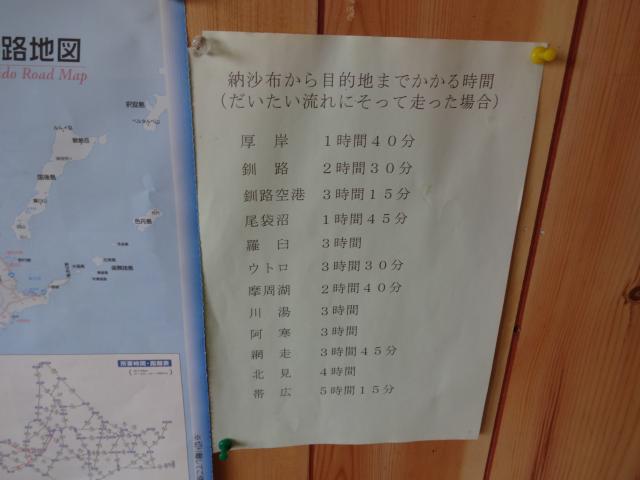 路地図
do Road Map
択捉島
国後島
色丹島
所要時間・距離表
納沙布から目的地までかかる時間
（だいたい流れにそって走った場合）
厚岸 1時間40分
釧路 2時間30分
釧路空港 3時間15分
尾袋沼 1時間45分
羅臼 3時間
ウトロ 3時間30分
摩周湖 2時間40分
川湯 3時間
阿寒 3時間
網走 3時間45分
北見 4時間
帯広 5時間15分